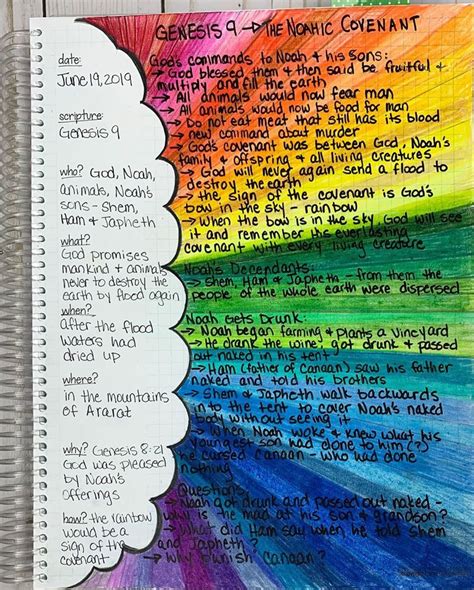 GENESIS 9 → THE NOAHIC COVENANT
date:
June 19, 2019
scripture:
Genesis 9
who? God, Noah,
animals, Noah's
sons - Shem,
Ham & Japheth
what?
God promises
mankind & animals
never to destroy the
earth by flood again
when?
after the flood
waters had
dried up
where?
in the mountains
of Ararat
why? Genesis 8:21
God was pleased
by Noah's
offerings
how? the rainbow
would be a
sign of the
covenant
God's commands to Noah & his sons:
→ God blessed them & then said be fruitful &
multiply and fill the earth
→ All animals would now fear man
→ All animals would now be food for man
→ Do not eat meat that still has its blood
→ new command about murder
→ God's covenant was between God, Noah's
family & offspring & all living creatures
→ God will never again send a flood to
destroy the earth
→ the sign of the covenant is God's
bow in the sky - rainbow
→ When the bow is in the sky, God will see
it and remember this everlasting
covenant with every living creature
Noah's Decendants:
→ Shem, Ham & Japheth - from them the
people of the whole earth were dispersed
Noah Gets Drunk:
→ Noah began farming & plants a vineyard
→ He drank the wine, got drunk & passed
out naked in his tent
→ Ham (father of Canaan) saw his father
naked and told his brothers
→ Shem & Japheth walk backwards
into the tent to cover Noah's naked
body without seeing it
→ When Noah woke & knew what his
youngest son had done to him (?)
he cursed Canaan - who had done
nothing
Questions:
→ Noah got drunk and passed out naked -
why is he mad at his son & grandson?
→ What did Ham say when he told Shem
and Japheth?
→ Why punish Canaan?